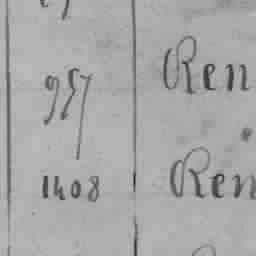 957 Ren
1408 Ren